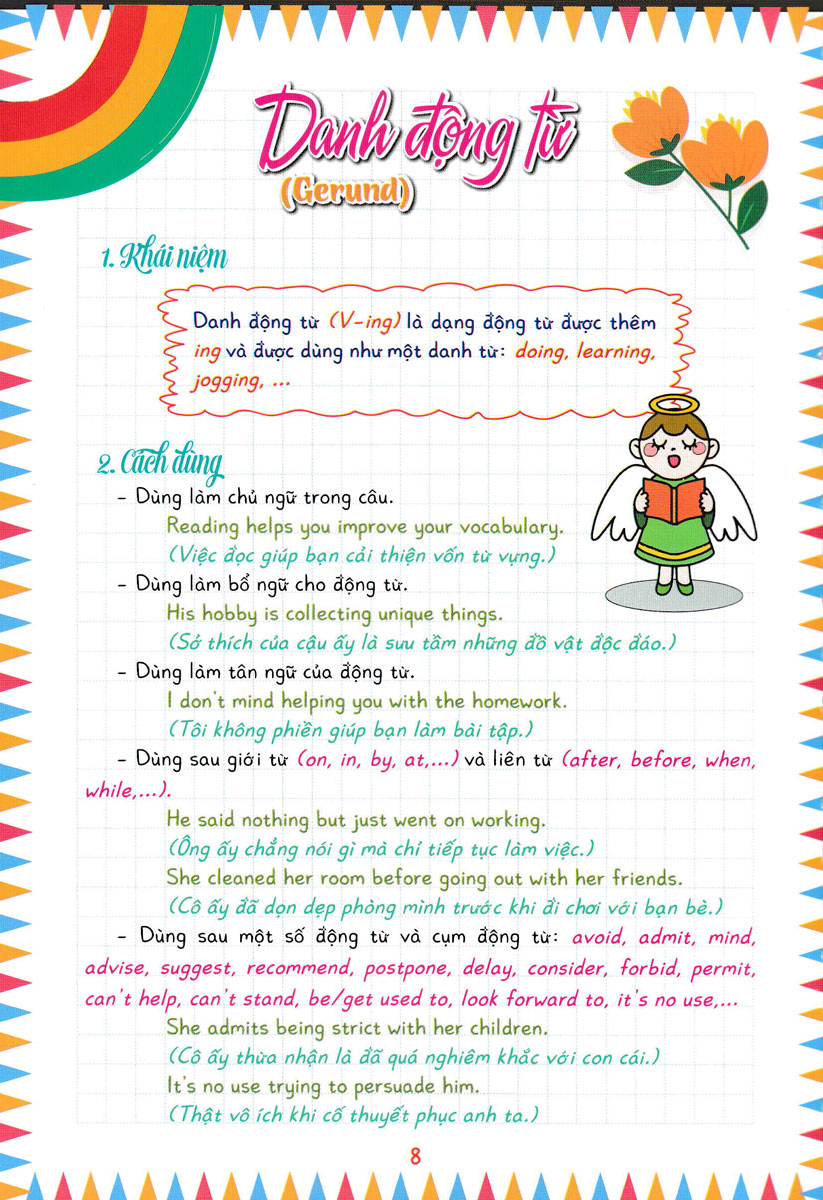 Danh động từ
(Gerund)
1. Khái niệm
Danh động từ (V-ing) là dạng động từ được thêm
ing và được dùng như một danh từ: doing, learning,
jogging, ...
2. Cách dùng
– Dùng làm chủ ngữ trong câu.
Reading helps you improve your vocabulary.
(Việc đọc giúp bạn cải thiện vốn từ vựng.)
– Dùng làm bổ ngữ cho động từ.
His hobby is collecting unique things.
(Sở thích của cậu ấy là sưu tầm những đồ vật độc đáo.)
– Dùng làm tân ngữ của động từ.
I don't mind helping you with the homework.
(Tôi không phiền giúp bạn làm bài tập.)
– Dùng sau giới từ (on, in, by, at,...) và liên từ (after, before, when,
while,...).
He said nothing but just went on working.
(Ông ấy chẳng nói gì mà chỉ tiếp tục làm việc.)
She cleaned her room before going out with her friends.
(Cô ấy đã dọn dẹp phòng mình trước khi đi chơi với bạn bè.)
– Dùng sau một số động từ và cụm động từ: avoid, admit, mind,
advise, suggest, recommend, postpone, delay, consider, forbid, permit,
can't help, can't stand, be/get used to, look forward to, it's no use,...
She admits being strict with her children.
(Cô ấy thừa nhận là đã quá nghiêm khắc với con cái.)
It's no use trying to persuade him.
(Thật vô ích khi cố thuyết phục anh ta.)
8